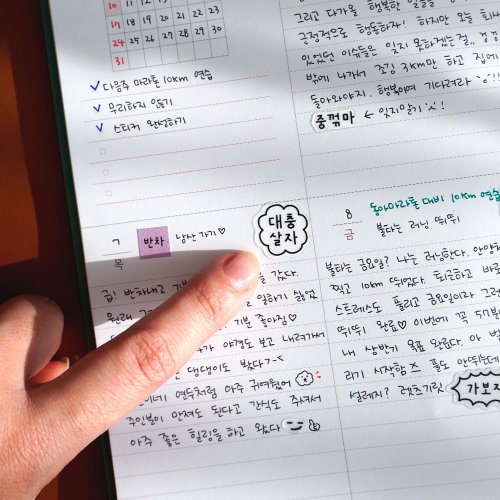 10 11 12 13 14 15 16
17 18 19 20 21 22 23
24 25 26 27 28 29 30
31
다음주 마라톤 10km 연습
무리하지 않기
스티커 완성하기
그리고 다가올 행복한
긍정적으로 행동하자! 하지만 오늘 회사
있었던 이슈들은 잊지 못하겠는걸..
밖에 나가서 조깅 3km만 하고 집에
돌아와야지. 행복이여 기다려라~
중꺾마 ← 잊지말기
7 반차 남산가기♡
목
대충
살자
갔다.
급! 반차내고 일하기 싫었
원래 기분 좋아짐♡
야경도 보고 내려가서
댕댕이도 봤다
연두처럼 아주 귀여웠어
주인분이 만져도 된다고 간식도 주셔서
아주 좋은 힐링을 하고 왔다
8 동아마라톤 대비 10km 연습
금 불타는 러닝 뛰뛰
불타는 금요일? 나는 러닝한다.
찍고 10km 뛰었다. 퇴근하고 바
스트레스도 풀리고 금요일이라 그
뛰뛰 완료♡ 이번에 꼭
내 상반기 목표 왕림다. 아
리기 시작함 폼도 안뛰었는데
설레지? 렛츠기릿
가보자